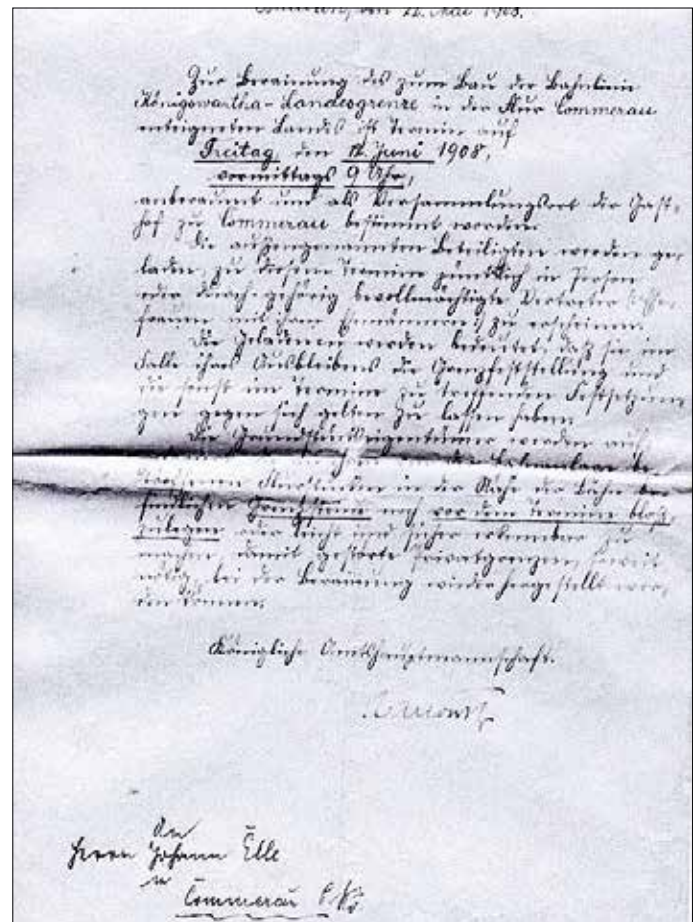 22. Mai 1908.
Zur Berainung des zum Bau der Bahnlinie
Königswartha-Landesgrenze in der Flur Commerau
enteigneten Landes ist Termin auf
Freitag, den 12. Juni 1908,
vormittags 9 Uhr,
anberaumt und als Versammlungsort der Gast-
hof zu Commerau bestimmt worden.
Die außengenannten Beteiligten werden ge-
laden, zu diesem Termine pünktlich in Person
oder durch gehörig bevollmächtigte Vertreter (Ehe-
frauen mit ihren Ehemännern) zu erscheinen.
Die Geladenen werden bedeutet, daß sie im
Falle ihres Ausbleibens die Grenzfeststellung und
die sonst im Termine zu treffenden Festsetzun-
gen gegen sich gelten zu lassen haben.
Die Grundstückseigentümer werden auf-
der Bahnanlage be-
troffenen Flurstücken in der Nähe der Bahn be-
findlichen Grenzsteine noch vor dem Termine bloß-
zulegen oder leicht und sicher erkennbar zu
machen, damit gestörte Privatgrenzen, soweit
nötig, bei der Berainung wiederhergestellt wer-
den können.
Königliche Amtshauptmannschaft.
An
Herrn Johann Elle
in
Commerau